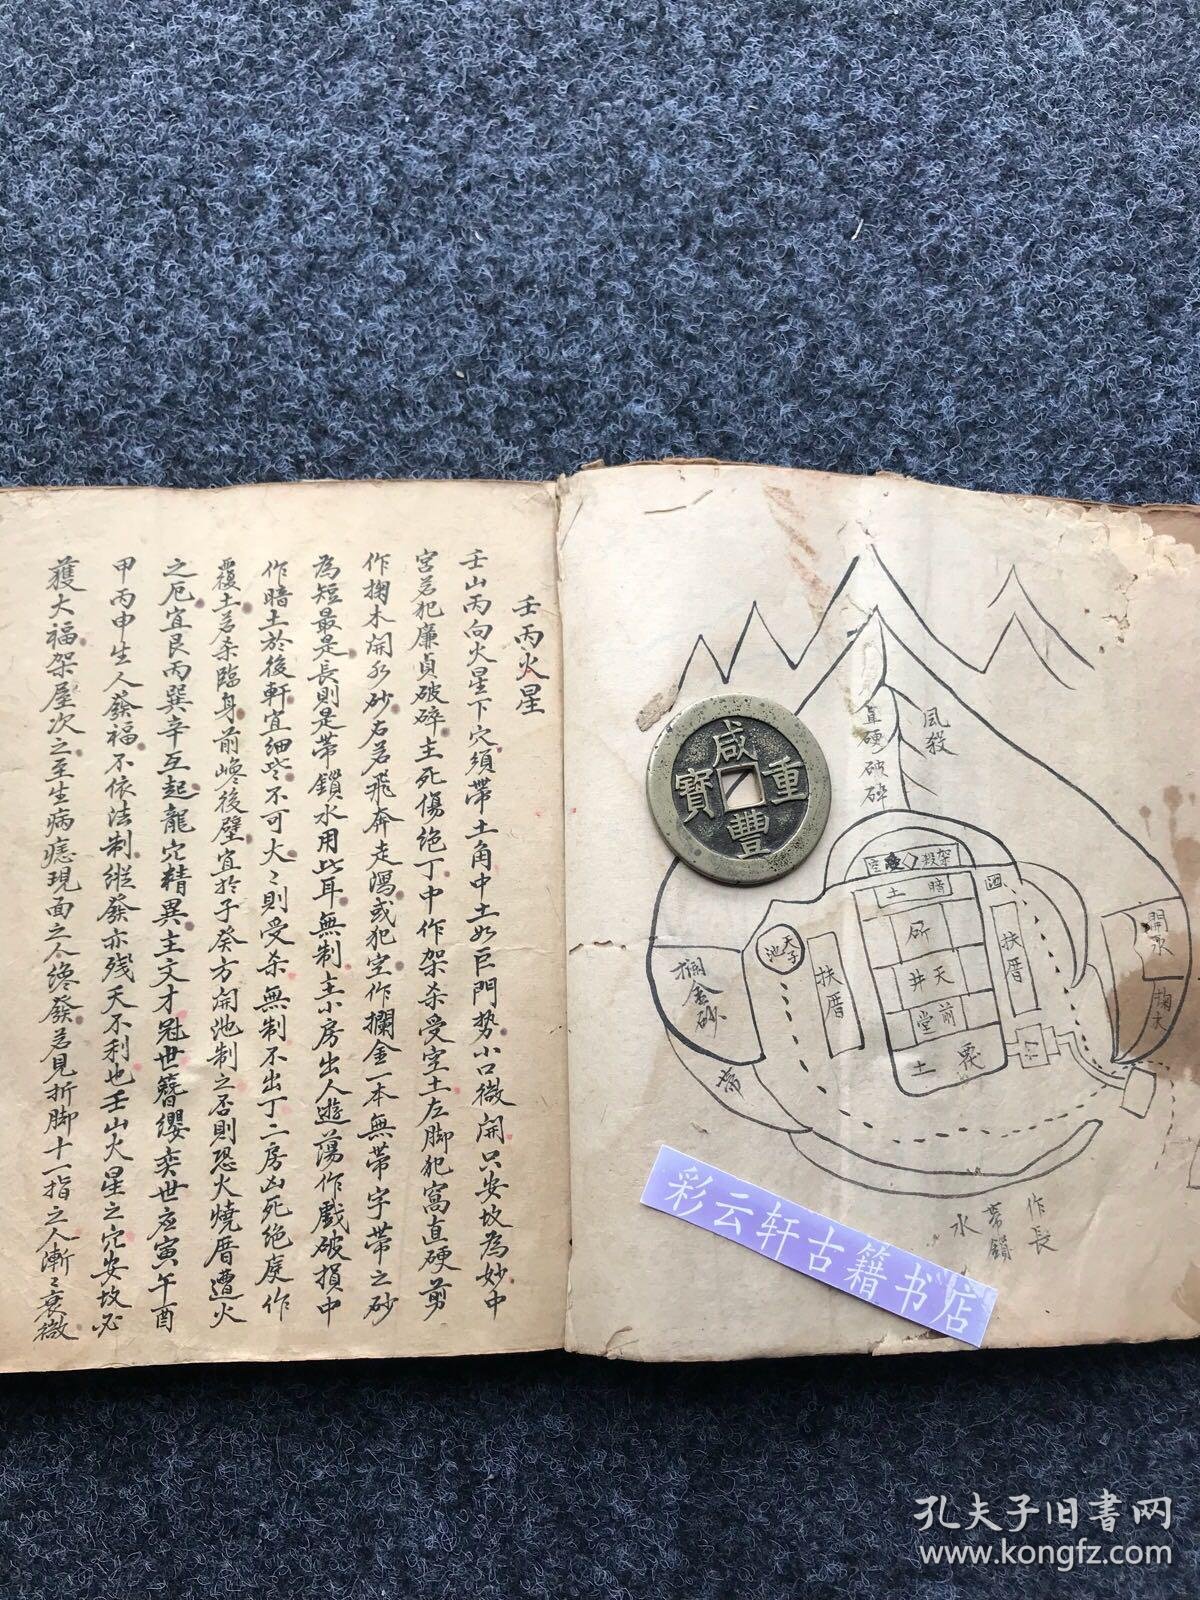 壬丙火星
壬山丙向火星下穴須帶土角中土如巨門勢小口微開只安坟為妙中
宮若犯廉貞破碎主死傷絕丁中作架杀受空土左脚犯窩直硬剪
作掬木開水砂右若飛奔走瀉或犯空作攔金一本無帶字帶之砂
為短最是長則是帶鎖水用此耳無制主小房出人遊蕩作戲破損中
作暗土於後軒宜細些不可大〻則受杀無制不出丁二房凶死絕庭作
覆土若杀臨身前巉後壁宜於子癸方開池制之否則恐火燒厝遭火
之厄宜艮丙巽辛互起龍穴精異主文才冠世簪纓奕世应寅午酉
甲丙申生人發福不依法制縱發亦残夭不利也壬山火星之穴安坟必
獲大福架屋次之至生病痣現面之人終發若見折脚十一指之人漸〻衰微
風殺
直硬破碎
架殺
暗土
所
天井
前堂
覆土
扶厝
扶厝
天子池
攔金砂
帶
開水
掬木
作長
帶鎖
水
咸豐重寶
彩云轩古籍书店
孔夫子旧书网
www.kongfz.com